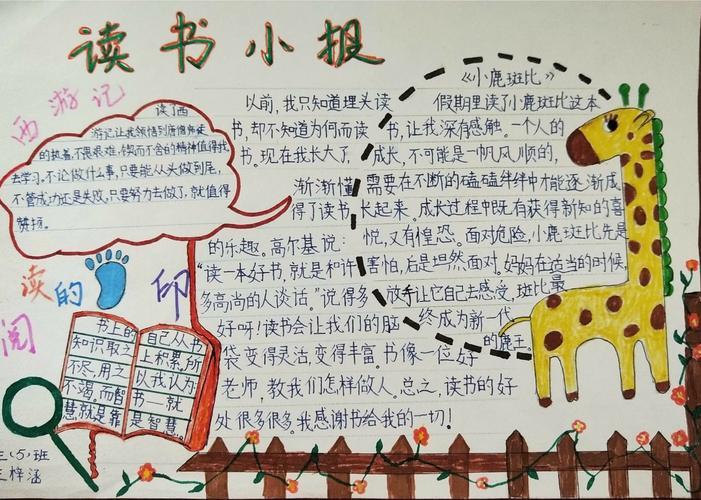 读书小报
西游记
读了西
游记让我领悟到唐僧师徒
的执着,不畏艰难,锲而不舍的精神值得我
去学习。不论做什么事,只要能从头做到底,
不管成功还是失败,只要努力去做了,就值得
赞扬。
阅读的
印
书上的
知识取之
不尽,用之
不竭,而智
慧就是靠
自己从书
上积累,所
以我认为
书一就
是智慧。
三(5)班
梓涵
以前,我只知道埋头读
书,却不知道为何而读
书。现在我长大了,
渐渐懂
得了读书
的乐趣。高尔基说:
“读一本好书,就是和许
多高尚的人谈话。”说得多
好呀!读书会让我们的脑
袋变得灵活,变得丰富。书像一位好
老师,教我们怎样做人。总之,读书的好
处很多很多。我感谢书给我的一切!
《小鹿斑比》
假期里读了小鹿斑比这本
书,让我深有感触。一个人的
成长,不可能是一帆风顺的,
需要在不断的磕磕绊绊中才能逐渐成
长起来。成长过程中既有获得新知的喜
悦,又有惶恐。面对危险,小鹿斑比先是
害怕,后是坦然面对。妈妈在适当的时候,
放手让它自己去感受,斑比最
终成为新一代
的鹿王。